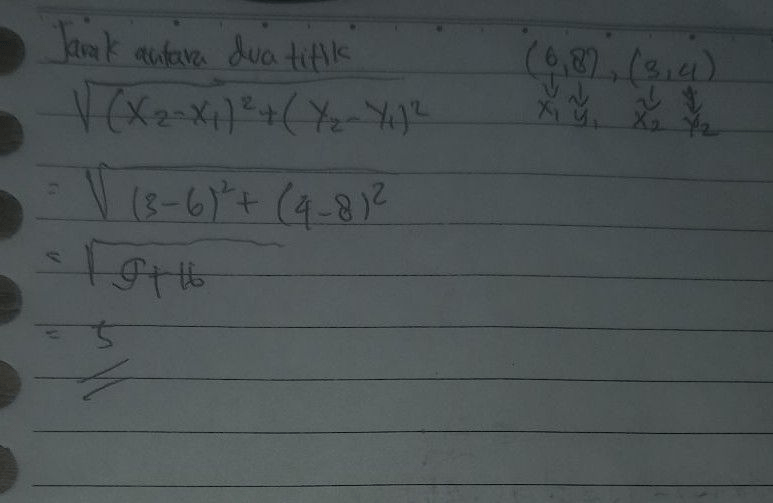 Jarak antara dua titik
(6,8), (3,4)
↓ ↓ ↓ ↓
x₁ y₁ x₂ y₂
√(x₂-x₁)²+(y₂-y₁)²
= √(3-6)²+(4-8)²
= √9+16
= 5